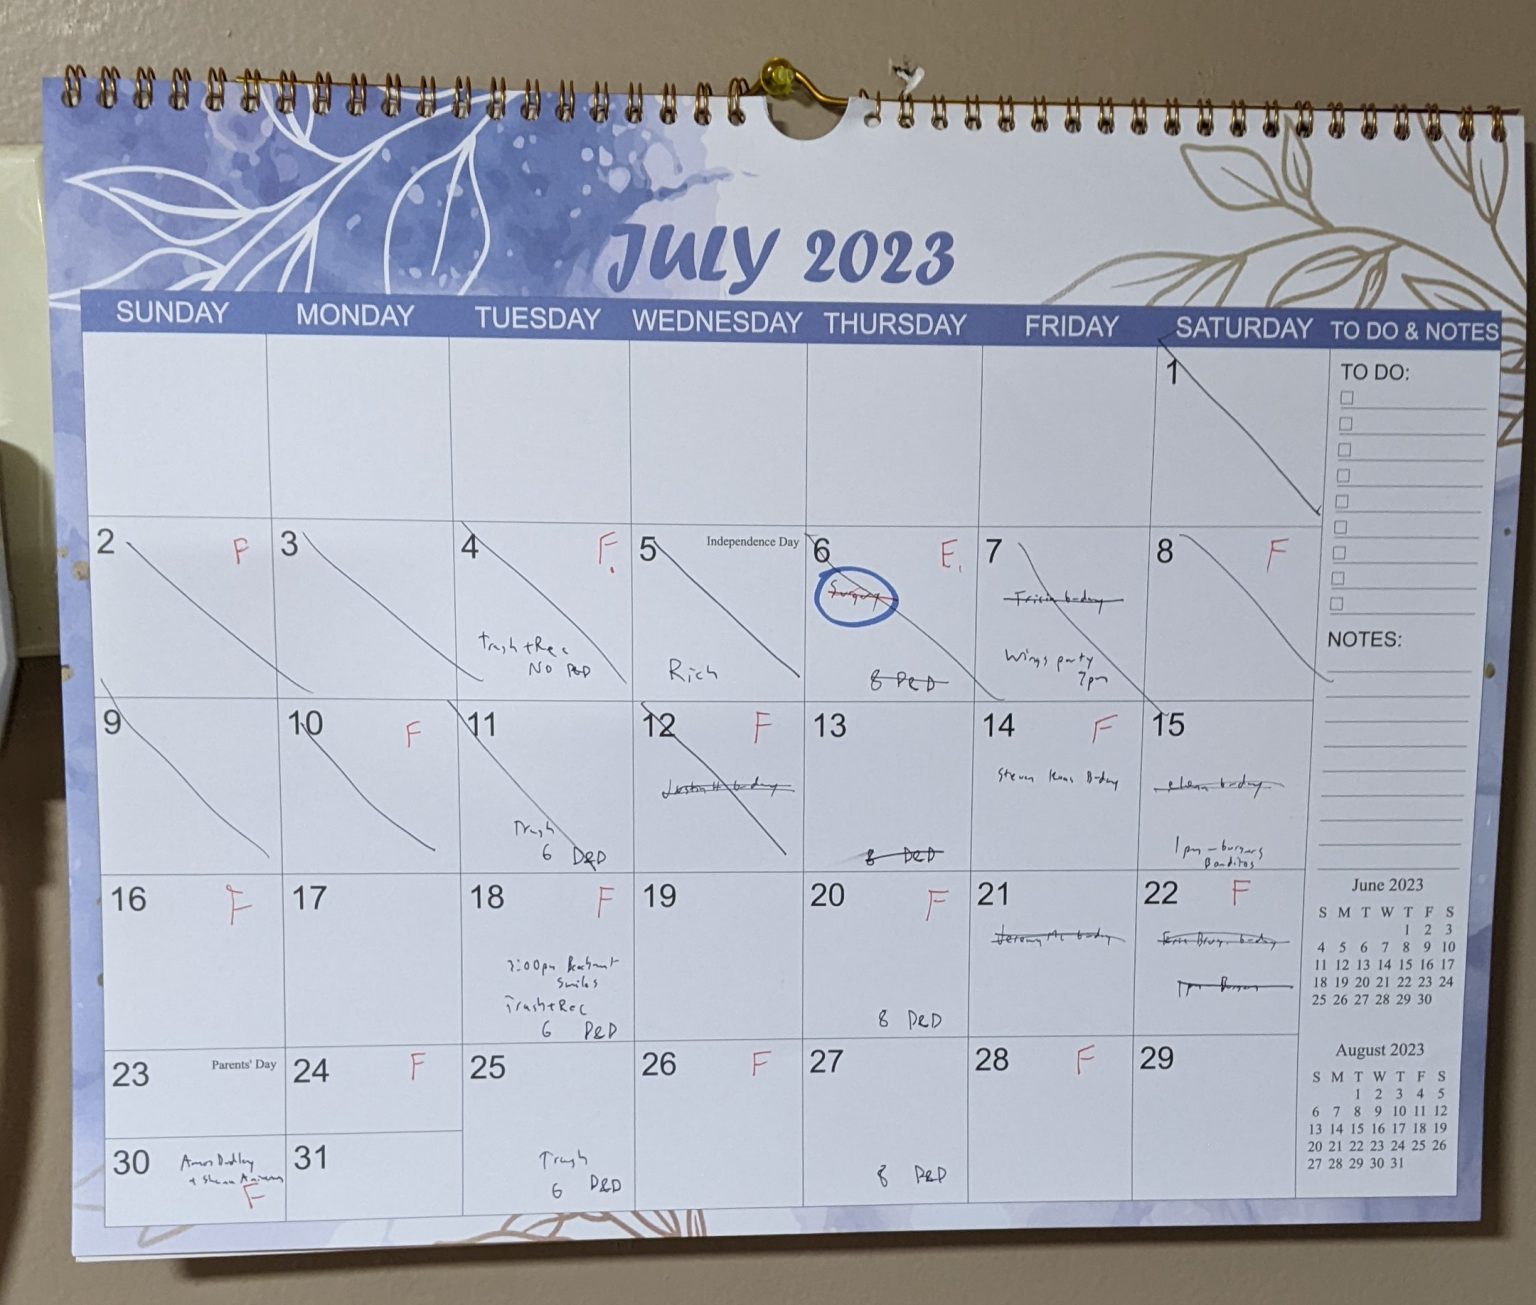 JULY 2023
SUNDAY MONDAY TUESDAY WEDNESDAY THURSDAY FRIDAY SATURDAY TO DO & NOTES
1
TO DO:
2 F
3
4 F.
Trash + Rec
NO D&D
5 Independence Day
Rich
6 E.
Surgery
8 D&D
7
Tricia b-day
Wings party
7pm
8 F
NOTES:
9
10 F
11
Trash
6 D&D
12 F
Justin H b-day
13
8 D&D
14 F
Steven B-day
15
b-day
1pm - burgers
Banditos
16 F
17
18 F
Smiles
Trash + Rec
6 D&D
19
20 F
8 D&D
21
Jeremy M. b-day
22 F
b-day
1pm
23 Parents' Day
24 F
25
Trash
6 D&D
26 F
27
8 D&D
28 F
29
30 Dudley
+ F
31
June 2023
S M T W T F S
1 2 3
4 5 6 7 8 9 10
11 12 13 14 15 16 17
18 19 20 21 22 23 24
25 26 27 28 29 30
August 2023
S M T W T F S
1 2 3 4 5
6 7 8 9 10 11 12
13 14 15 16 17 18 19
20 21 22 23 24 25 26
27 28 29 30 31